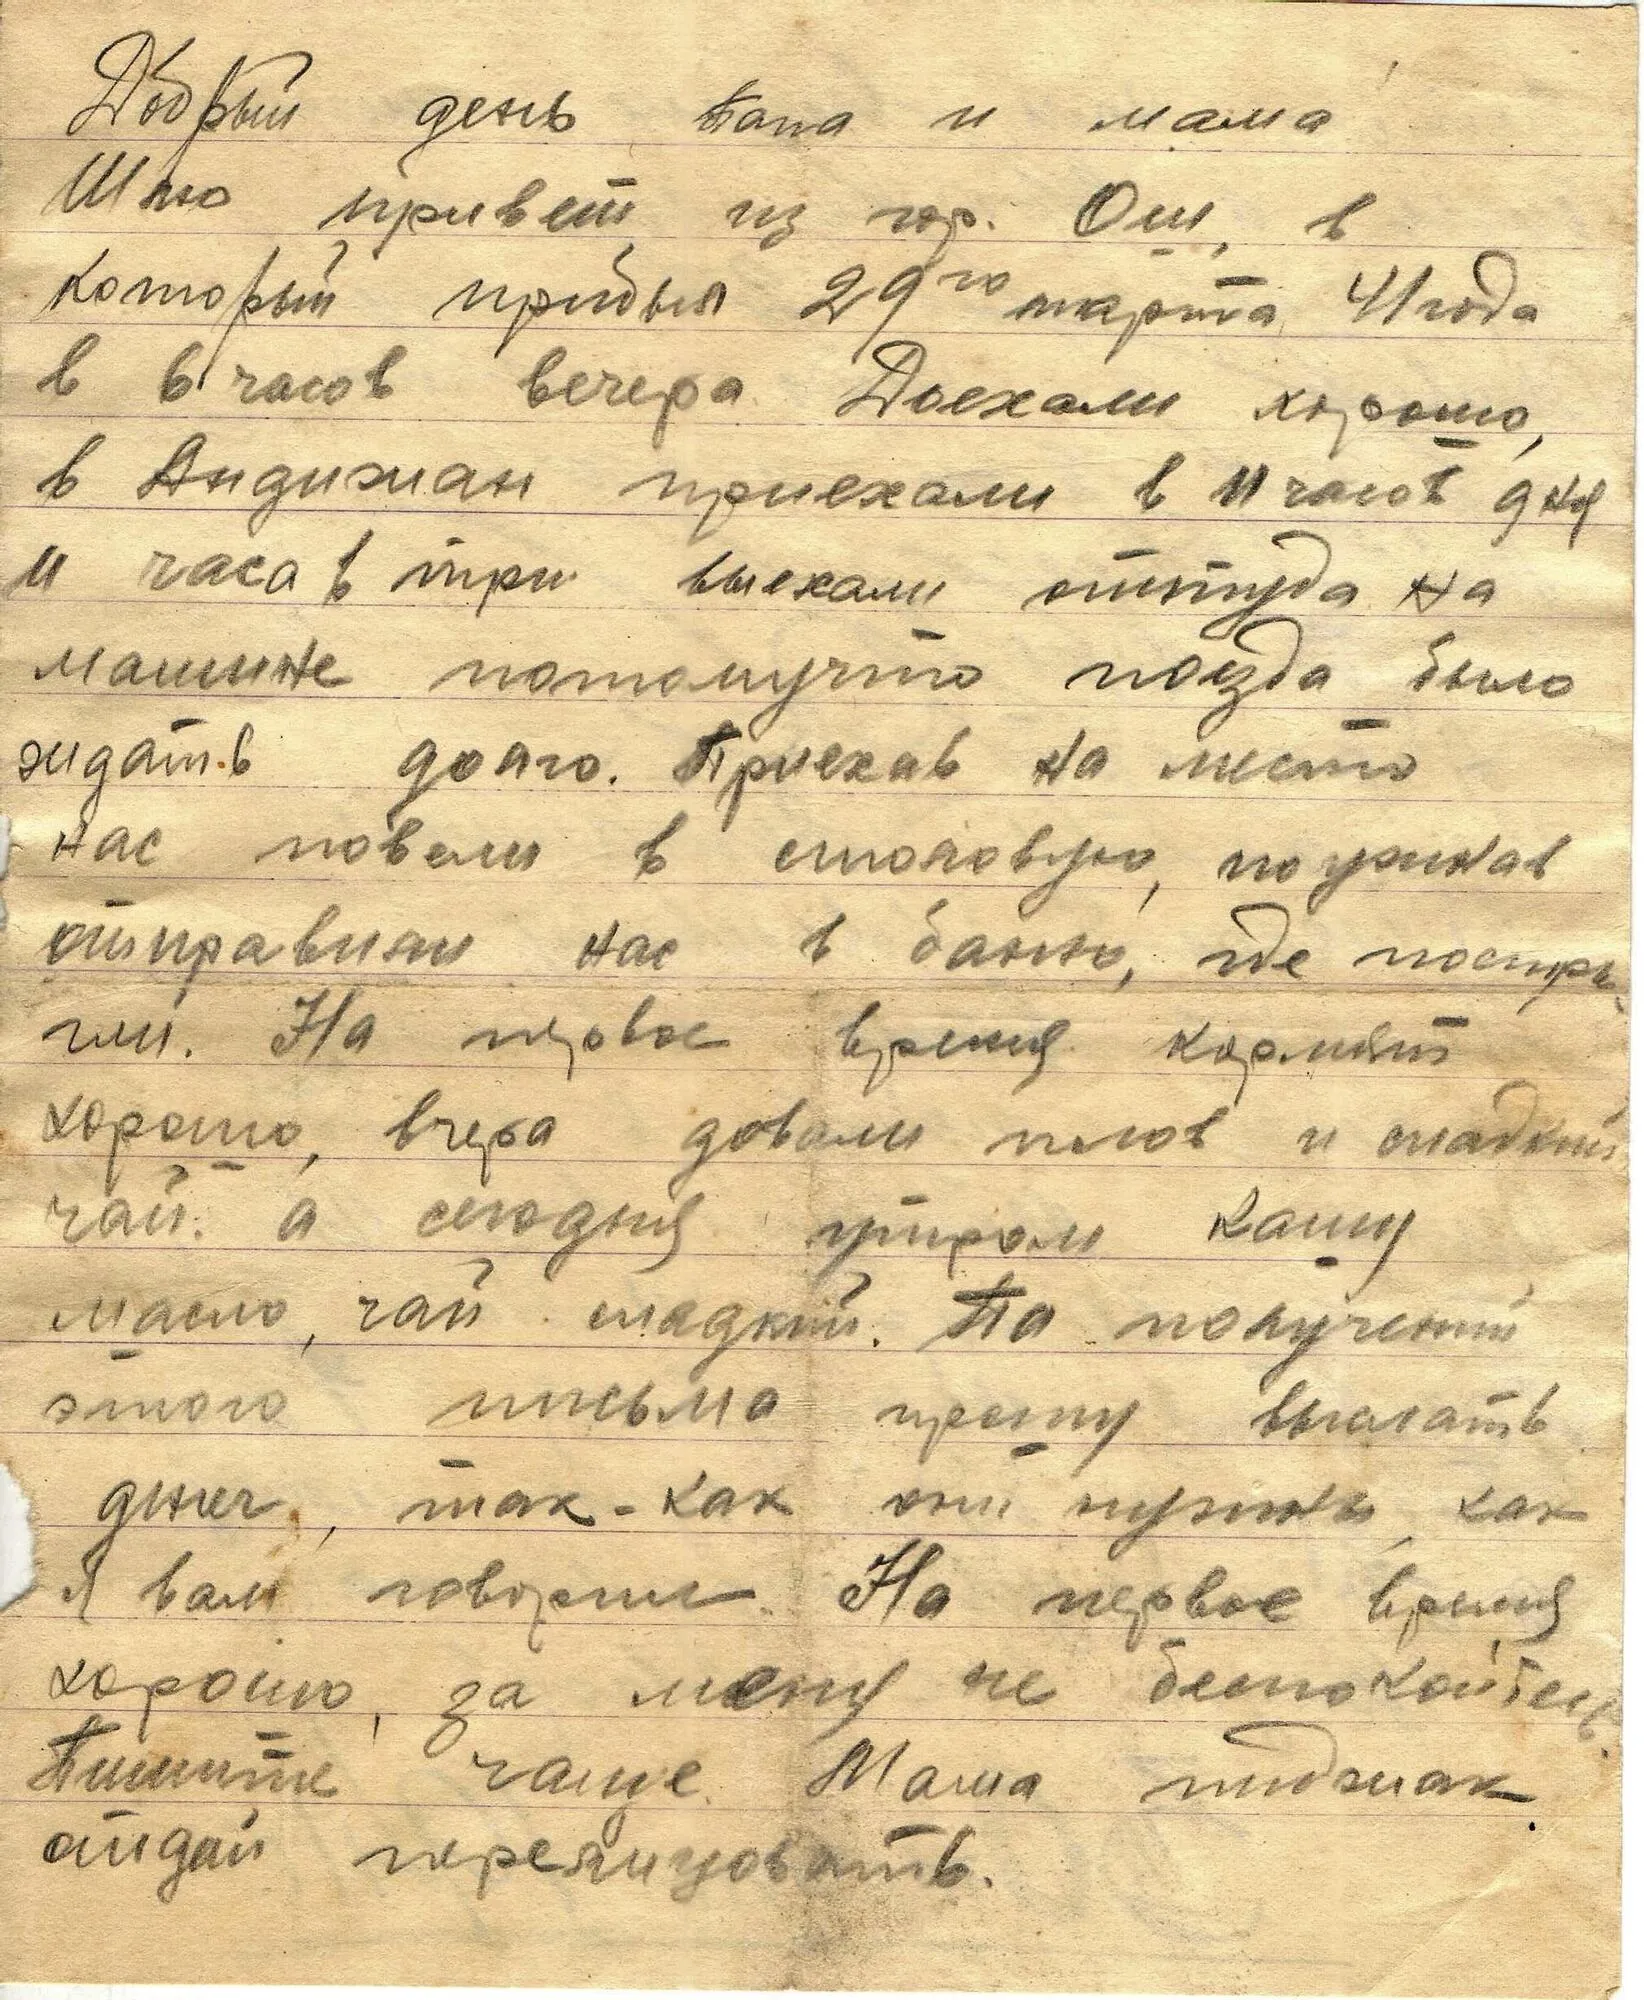 Добрый день папа и мама!
Шлю привет из гор. Ош, в
который прибыл 29го марта 41 года
в 6 часов вечера. Доехали хорошо,
в Андижан приехали в 11 часов дня
и часа в три выехали оттуда на
машине потомучто поезда было
ждать долго. Приехав на место
нас повели в столовую, поужинав
отправили нас в баню, где постры-
гли. На первое время кормят
хорошо, вчера довали плов и сладкий
чай. а сегодня утром кашу
масло, чай сладкий. По получений
этого письма прошу выслать
денег, так-как они нужны, как
я вам говорил. На первое время
хорошо, за меня не беспокойтесь.
Пишите чаще. Мама пиджак
отдай перелицовать.